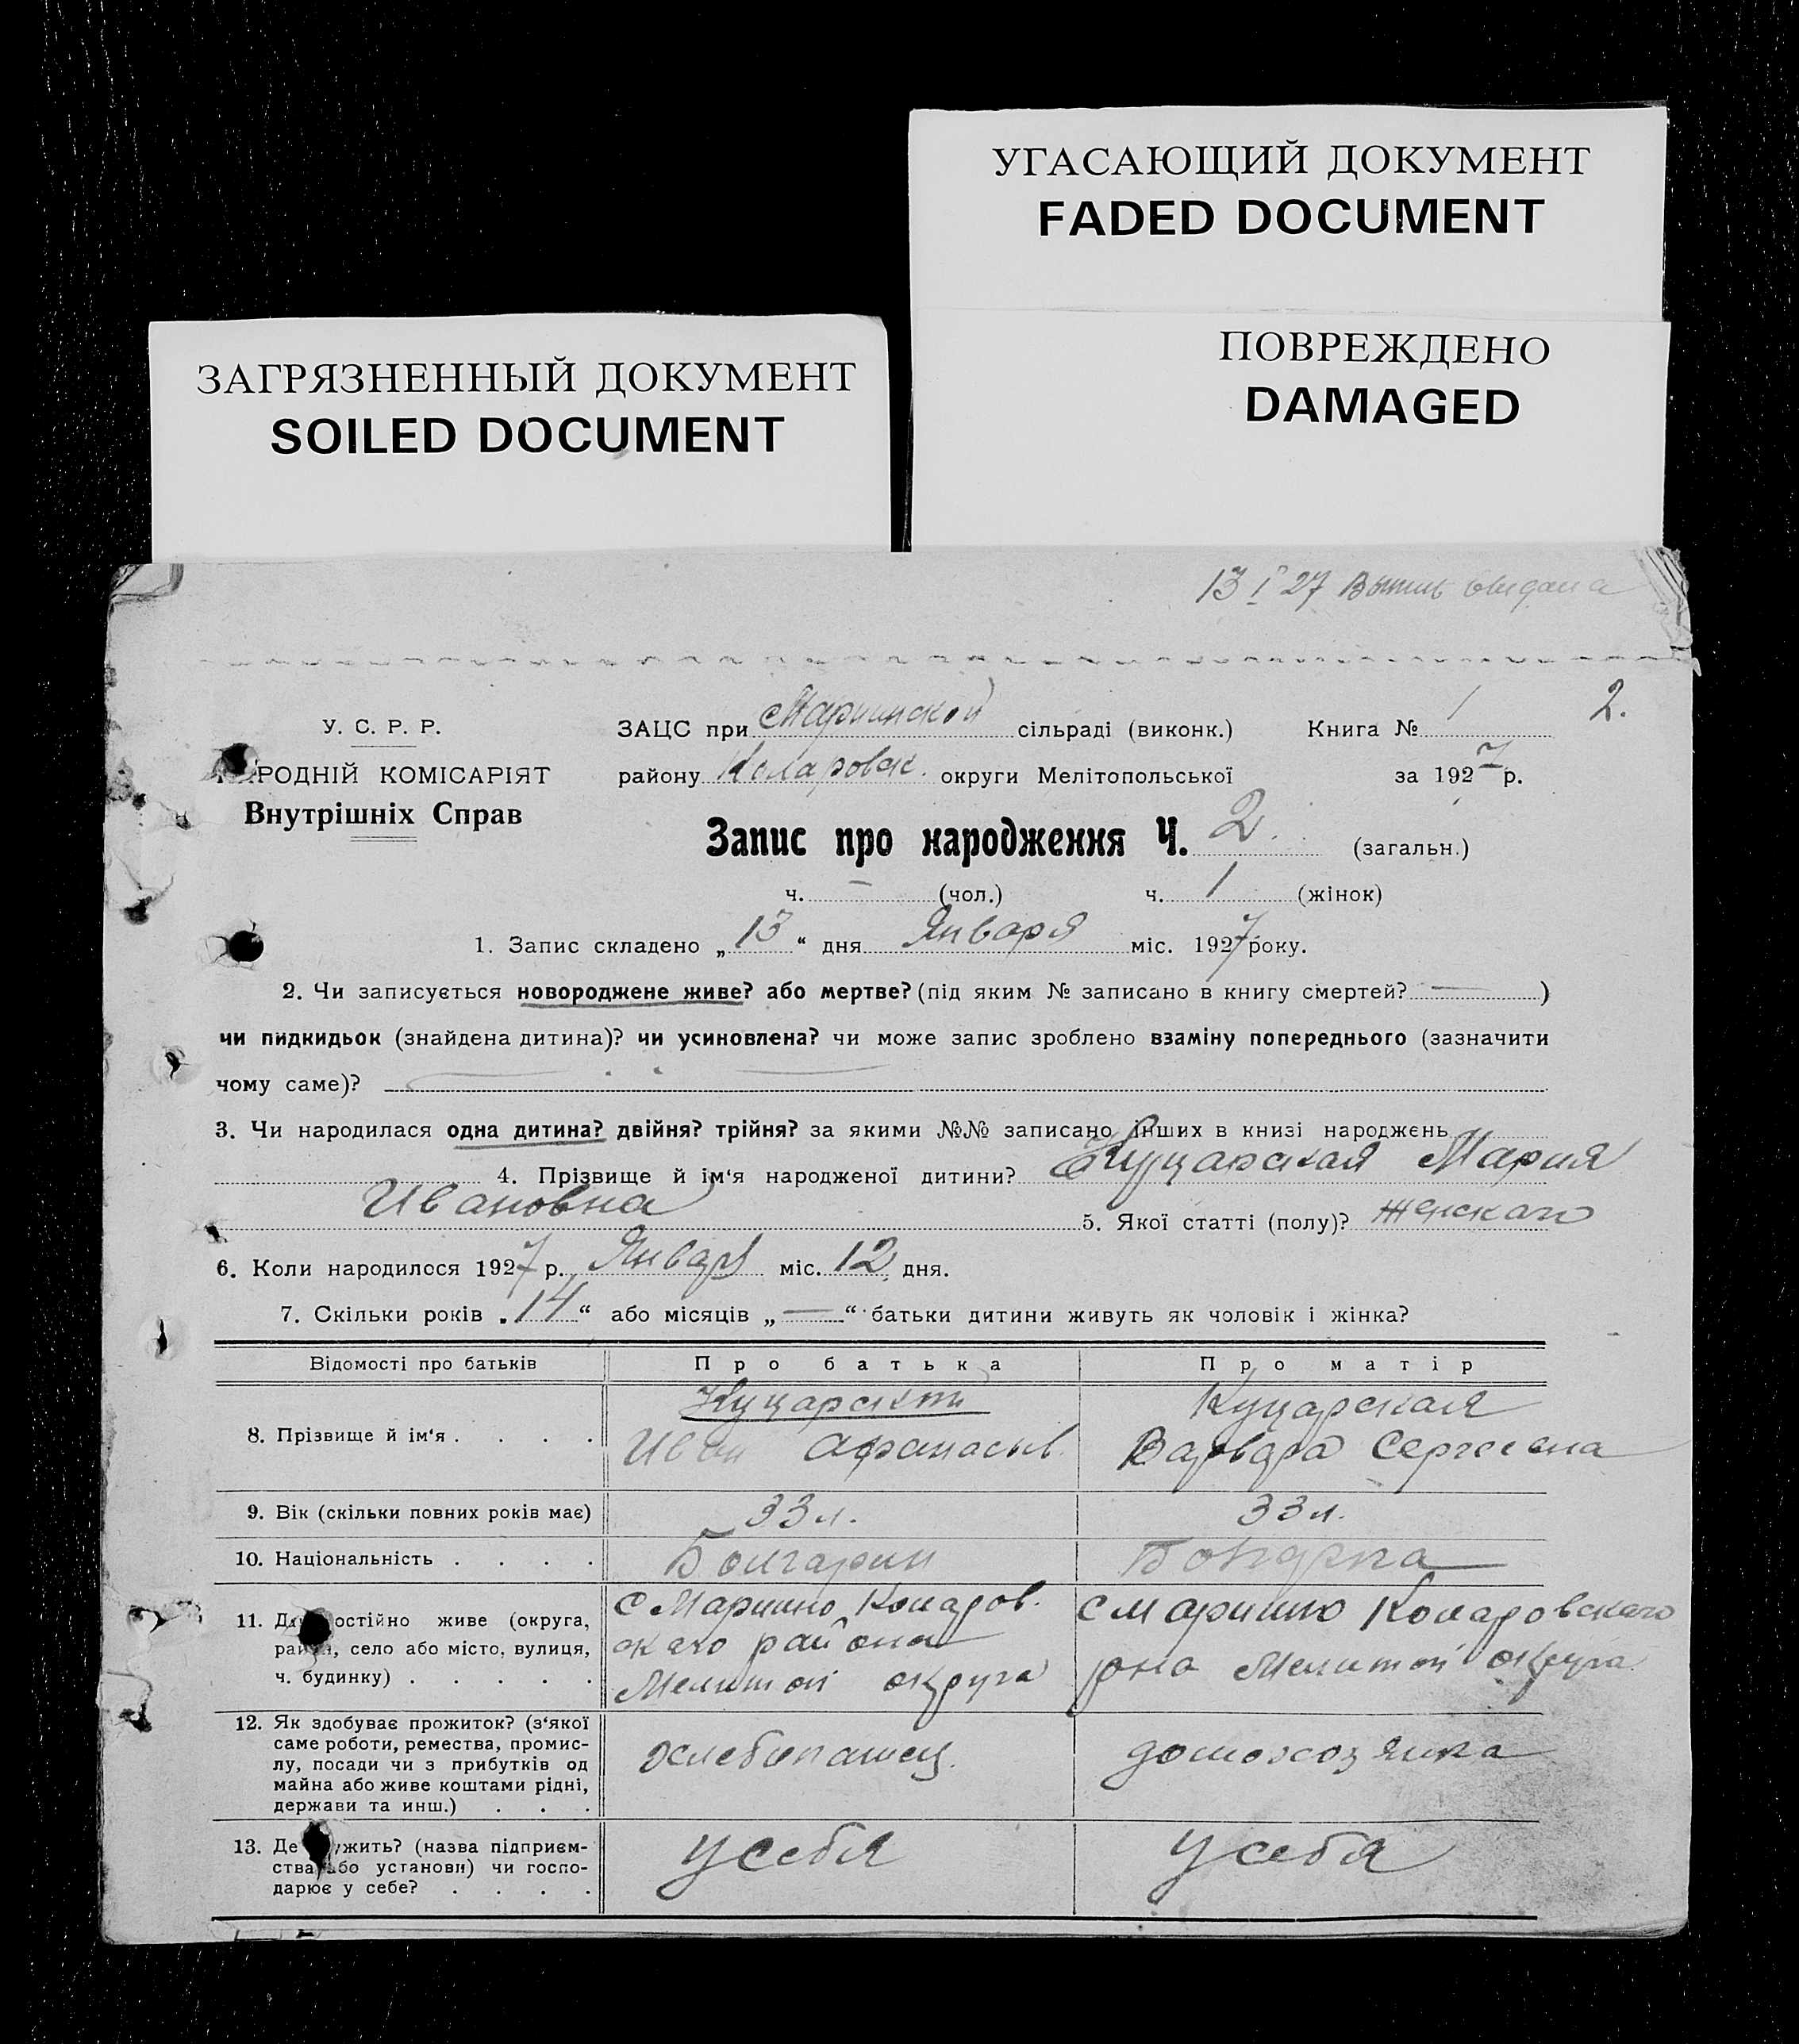 УГАСАЮЩИЙ ДОКУМЕНТ
FADED DOCUMENT
ПОВРЕЖДЕНО
DAMAGED
ЗАГРЯЗНЕННЫЙ ДОКУМЕНТ
SOILED DOCUMENT
13 I 27 выдана
У. С. Р. Р.
РОДНІЙ КОМІСАРІЯТ
Внутрішніх Справ
ЗАЦС при Мариинской сільраді (виконк.) Книга № 1 2.
району Коларовск. округи Мелітопольської за 1927 р.
Запис про народження Ч. 2. (загальн.)
ч. — (чол.) ч. 1 (жінок)
1. Запис складено „13“ дня Января міс. 1927 року.
2. Чи записується новороджене живе? або мертве? (під яким № записано в книгу смертей? — )
чи пидкидьок (знайдена дитина)? чи усиновлена? чи може запис зроблено взаміну попереднього (зазначити
чому саме)?
3. Чи народилася одна дитина? двійня? трійня? за якими №№ записано інших в книзі народжень
4. Прізвище й ім‘я народженої дитини? Куцарская Мария
Ивановна 5. Якої статті (полу)? женскаго
6. Коли народилося 1927 р. Январ міс. 12 дня.
7. Скільки років „14“ або місяців „—“ батьки дитини живуть як чоловік і жінка?
Відомості про батьків Про батька Про матір
8. Прізвище й ім‘я . . . .
Куцарский
Иван Афанасьев.
Куцарская
Варвара Сергеевна
9. Вік (скільки повних років має) 33 л. 33 л.
10. Національність . . . . Болгарин Болгарка
11. Де остійно живе (округа,
район, село або місто, вулиця,
ч. будинку) . . . . .
с Марино Коларов.
скаго района
Мелитоп округа
с Марино Коларовскаго
рна Мелитоп округа
12. Як здобуває прожиток? (з‘якої
саме роботи, ремества, промис-
лу, посади чи з прибутків од
майна або живе коштами рідні,
держави та инш.) . . .
хлебопашец. домохозяйка
13. Де ужить? (назва підприєм-
ства або установи) чи госпо-
дарює у себе? . . . .
у себя у себя